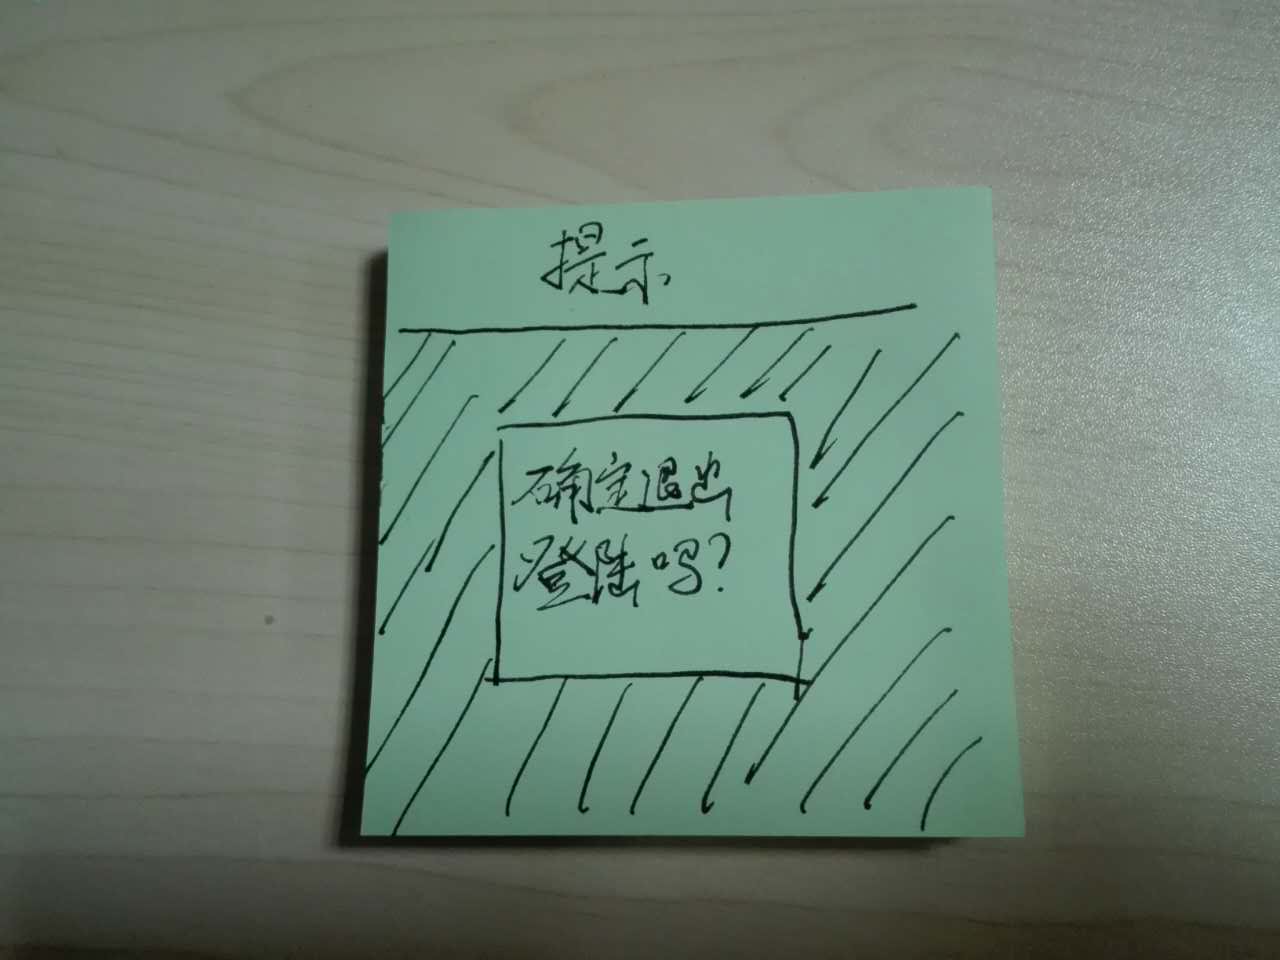 提示
确定退出
登陆吗?